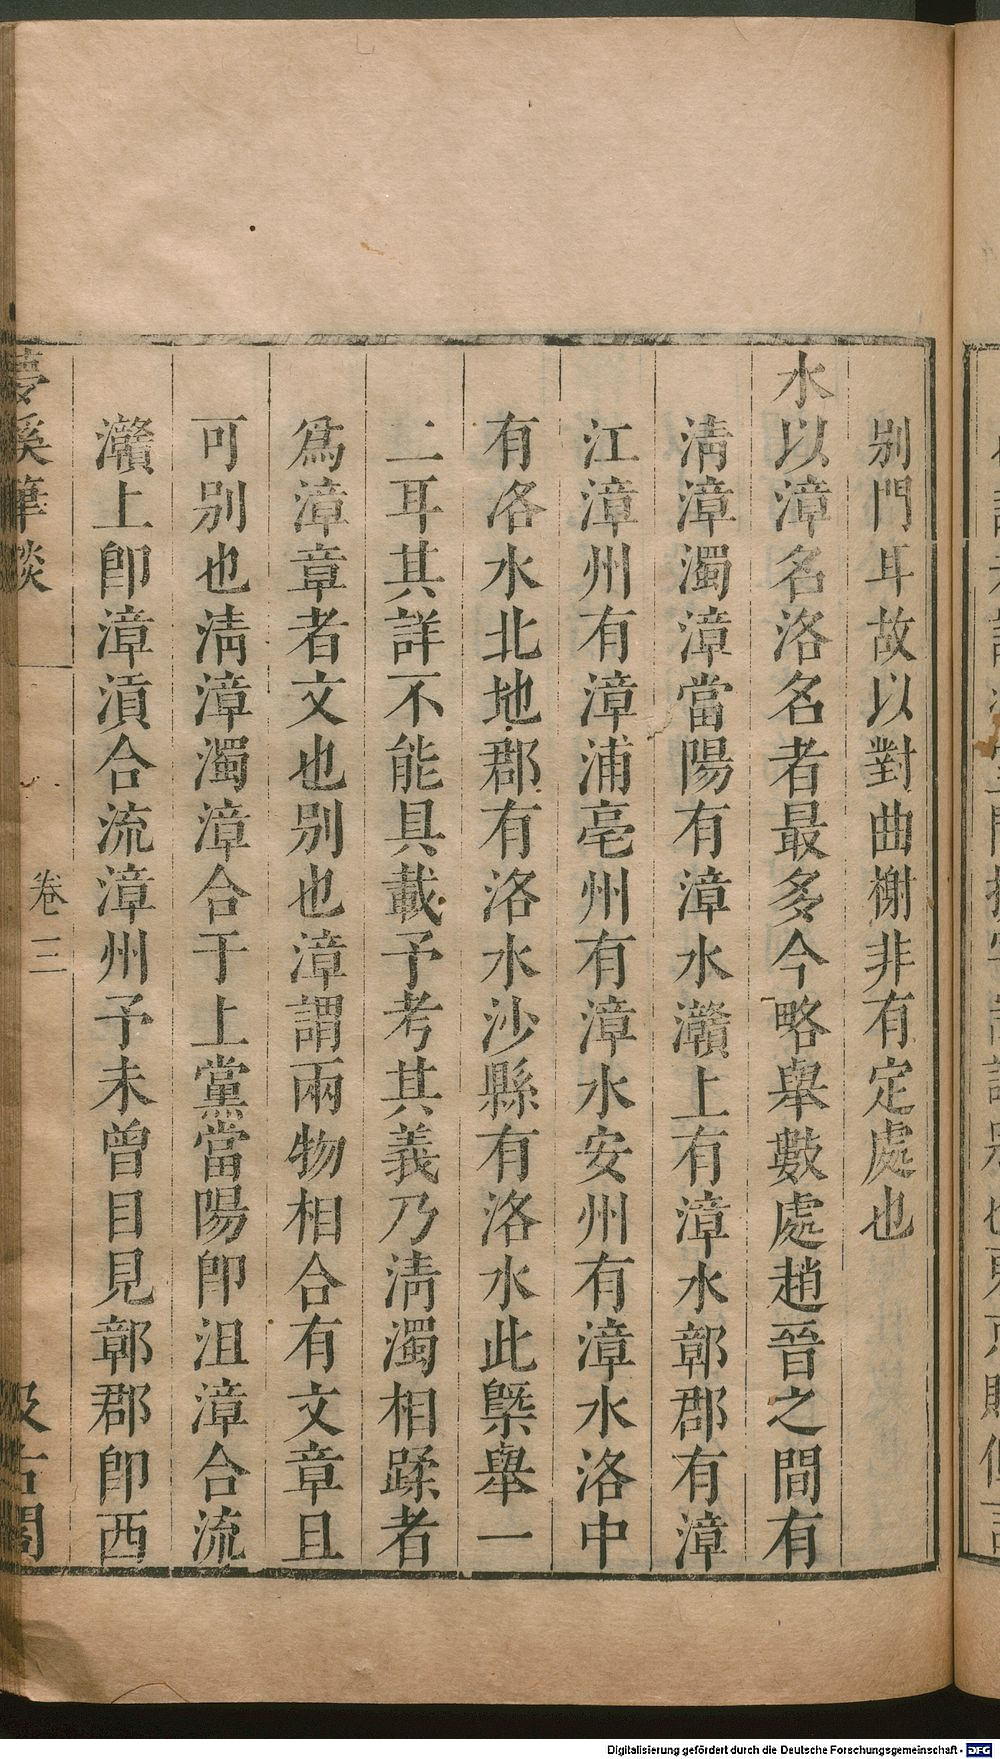 别門耳故以對曲榭非有定處也
水以漳名洛名者最多今略舉數處趙晉之間有
淸漳濁漳當陽有漳水灨上有漳水鄣郡有漳
江漳州有漳浦亳州有漳水安州有漳水洛中
有洛水北地郡有洛水沙縣有洛水此槩舉一
二耳其詳不能具載予考其義乃淸濁相蹂者
爲漳章者文也别也漳謂兩物相合有文章且
可别也淸漳濁漳合于上黨當陽卽沮漳合流
灨上卽漳滇合流漳州予未曾目見鄣郡卽西
夢溪筆談
卷三
汲古閣
Digitalisierung gefördert durch die Deutsche Forschungsgemeinschaft - DFG